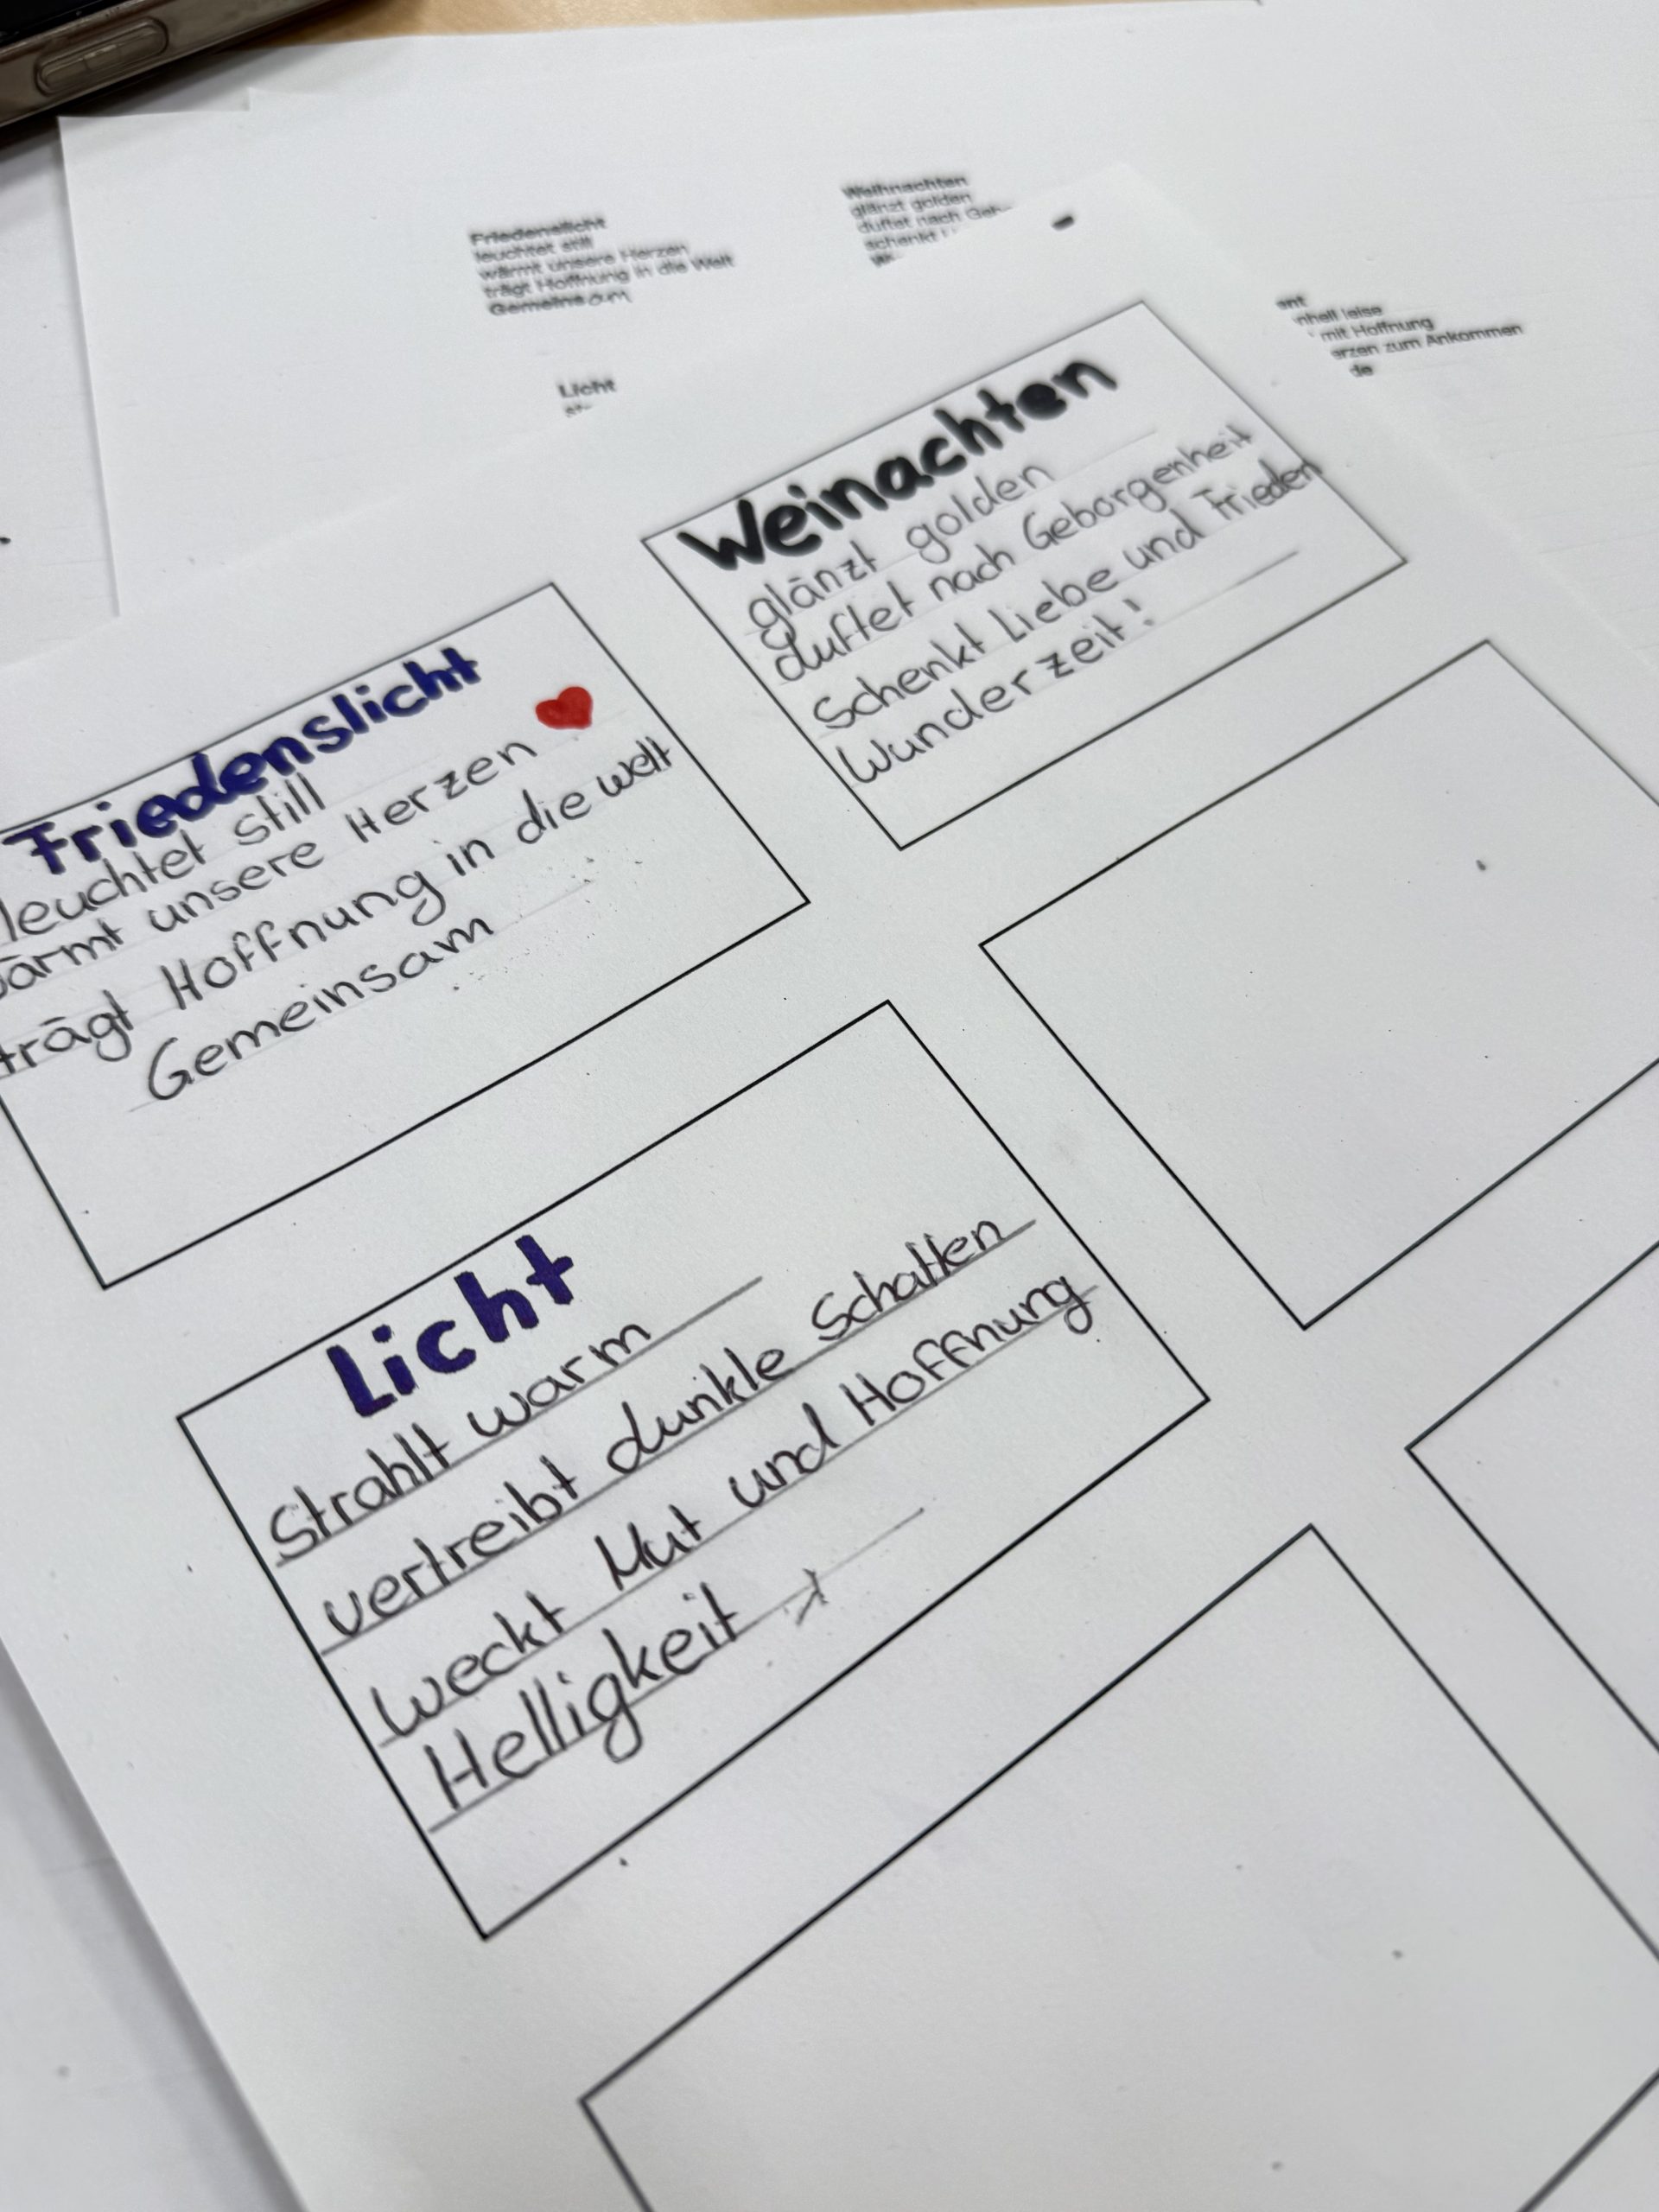 Friedenslicht
leuchtet still
wärmt unsere Herzen
trägt Hoffnung in die Welt
Gemeinsam
Weihnachten
glänzt golden
duftet nach
schenkt
Licht
mit Hoffnung
zum Ankommen
Weinachten
glänzt golden
duftet nach Geborgenheit
Schenkt Liebe und Frieden
Wunderzeit!
Friedenslicht
leuchtet still
wärmt unsere Herzen
trägt Hoffnung in die welt
Gemeinsam
Licht
Strahlt warm
vertreibt dunkle Schatten
weckt Mut und Hoffnung
Helligkeit